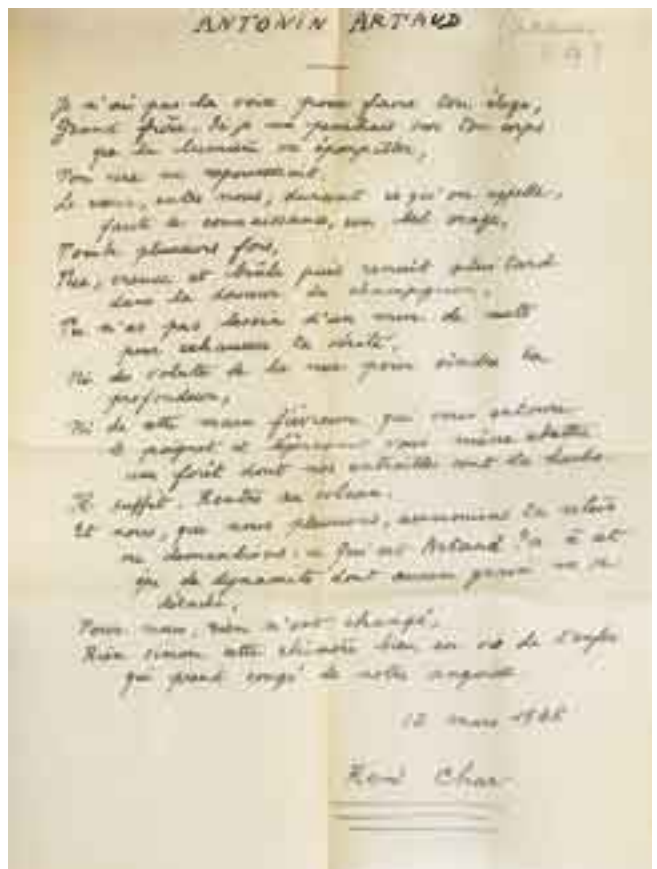 ANTONIN ARTAUD
Je n'ai pas la voix pour faire ton éloge,
Grand frère. Si je me penchais sur ton corps
que la lumière va éparpiller,
Ton rire me repousserait.
Le cœur, entre nous, durant ce qu'on appelle,
faute de connaissance, un bel orage,
Tombe plusieurs fois,
Tue, creuse et brûle puis renaît plus tard
dans la douceur du champignon.
Tu n'as pas besoin d'un mur de mots
pour exhausser ta vérité,
Ni des volutes de la mer pour oindre ta
profondeur,
Ni de cette main fiévreuse qui vous entoure
le poignet et légèrement vous mène abattre
une forêt dont nos entrailles sont la hache.
Il suffit. Rentre au volcan.
Et nous, que nous pleurions, assumions ta relève
ou demandions : « Qui est Artaud ? » à cet
épi de dynamite dont aucun grain ne s'est
détaché,
Pour nous, rien n'est changé,
Rien sinon cette chimère bien en vie de l'enfer
qui prend congé de notre angoisse
12 mars 1948
René Char